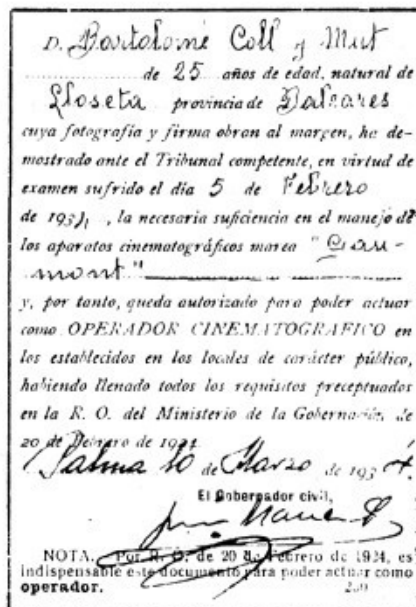 D. Bartolomé Coll y Mut
de 25 años de edad, natural de
Lloseta provincia de Baleares
cuya fotografía y firma obran al margen, ha de-
mostrado ante el Tribunal competente, en virtud de
examen sufrido el día 5 de Febrero
de 1934, la necesaria suficiencia en el manejo de
los aparatos cinematográficos marca "Gau-
mont"
y, por tanto, queda autorizado para poder actuar
como OPERADOR CINEMATOGRAFICO en
los establecidos en los locales de carácter público,
habiendo llenado todos los requisitos preceptuados
en la R. O. del Ministerio de la Gobernación de
20 de Febrero de 1924
Palma 10 de Marzo de 1934.
El Gobernador civil,
NOTA. Por R. O. de 20 de Febrero de 1924, es
indispensable este documento para poder actuar como
operador.